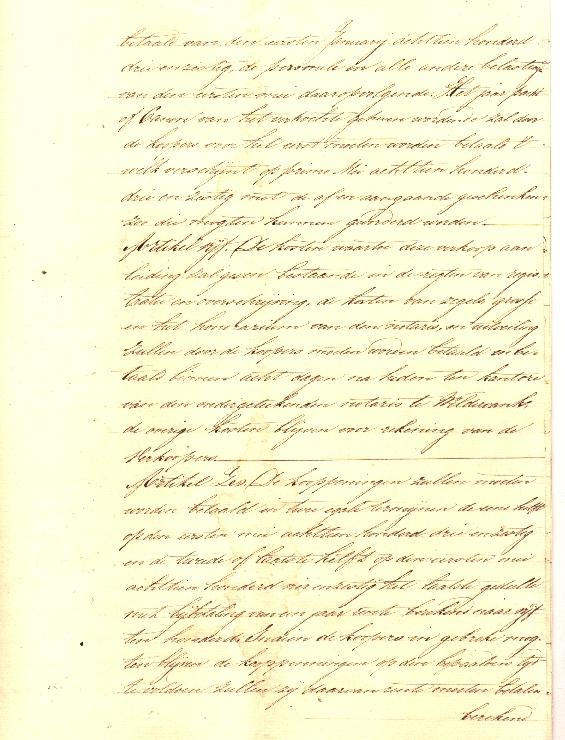 betaald van den eersten Januarij achttien honderd
drie en zestig, de personele en alle andere belasting
van den eersten mei daaropvolgende. Het jaar pacht
of van het verkochte geheven wordende zal door
de koopers voor het eerst moeten worden betaald 't
welk verschijnt op primo Mei achttien honderd
drie en zestig met de af en aangaande geschenken
zoo die mogten kunnen gevorderd worden.
Artikel vijf. De kosten waartoe deze verkoop aan
leiding zal geven bestaande in de regten van regis
tratie en overschrijving, de kosten van zegels, grosse
en het honorarium van den notaris, en uitveiling
zullen door de koopers moeten worden betaald en be
taald binnen acht dagen na heden ten kantore
van den ondergeteekenden notaris te Wildervank,
de overige kosten blijven voor rekening van de
Verkoopers.
Artikel Zes. De kooppenningen zullen moeten
worden betaald in twee egale termijnen de eene helft
op den eersten mei achttien honderd drie en zestig
en de tweede of laatste helft op den eersten mei
achttien honderd vier en zestig het laatste gedeelte
met bijbetaling van een jaar rente berekend naar vijf
ten honderd. Indien de koopers in gebreke mog
ten blijven de kooppenningen op den bepaalden tijd
te voldoen zullen zij daarvan rente moeten betalen
berekend